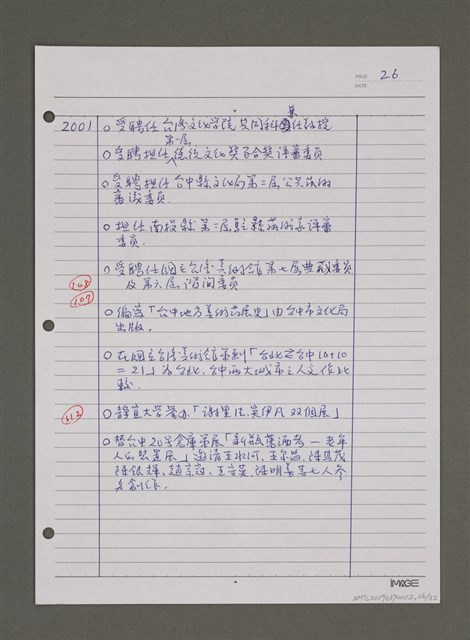 PAGE 26
DATE
2001
○受聘任台灣文化学院共同科兼任教授
第一屆
○受聘担任德術文化獎百合獎評審委員
○受聘担任台中縣文化局第二屆公共藝術
審議委員.
○担任南投縣第二屆駐縣藝術家評審
委員.
○受聘任國立台灣美術館第七屆典藏委員
108
及第六屆諮詢委員
107
○編著「台中地方美術發展史」由台中市文化局
出版.
○在國立台灣美術館策劃「台北‧台中10+10
=21」為台北、台中兩大城市之人文作比
較.
○靜宜大学舉办「謝里法、吳伊凡双個展」
○替台中20号倉庫策展「新瓶舊酒考—老年
人的裝置展」邀請王水河、王尔昌、陳其茂
陳銀輝、趙宗冠、王守英、陳明善等七人參
与創作.
IMAGE
NMTL20090890002,26/32